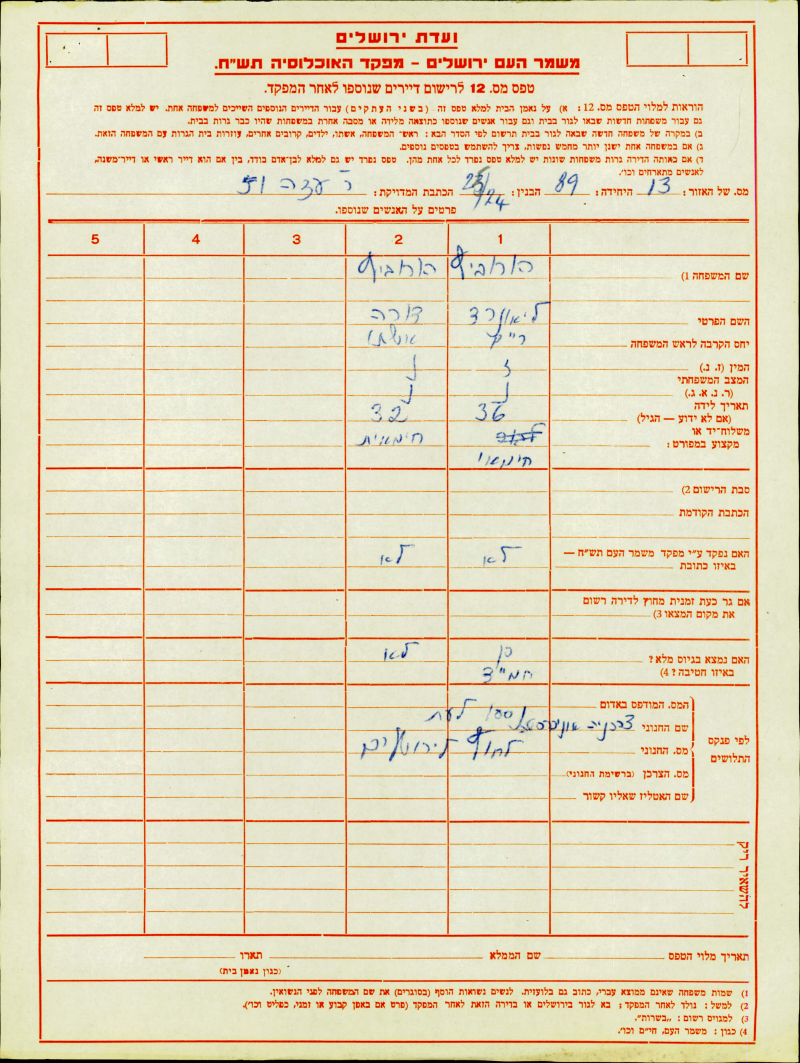 ועדת ירושלים
משמר העם ירושלים – מפקד האוכלוסיה תש"ח.
טפס מס. 12 לרישום דיירים שנוספו לאחר המפקד.
הוראות למלוי הטפס מס. 12: א) על נאמן הבית למלא טפס זה (בשני העתקים) עבור הדיירים הנוספים השייכים למשפחה אחת. יש למלא טפס זה
גם עבור משפחות חדשות שבאו לגור בבית וגם עבור אנשים שנוספו כתוצאה מלידה או מסבה אחרת במשפחות שהיו כבר גרות בבית.
ב) במקרה של משפחה חדשה שבאה לגור בבית תרשום לפי הסדר הבא: ראש המשפחה, אשתו, ילדים, קרובים אחרים, עוזרות בית הגרות עם המשפחה הזאת.
ג) אם במשפחה אחת ישנן יותר מחמש נפשות, צריך להשתמש בטפסים נוספים.
ד) אם באותה הדירה גרות משפחות שונות יש למלא טפס נפרד לכל אחת מהן. טפס נפרד יש גם למלא לבן־אדם בודד, בין אם הוא דייר ראשי או דייר־משנה,
לאנשים מתארחים וכו'.
מס. של האזור: 13 היחידה: 89 הבנין: /24 הכתבת המדויקת: ר' עזה 51
פרטים על האנשים שנוספו.
1 2 3 4 5
שם המשפחה (1
השם הפרטי ליאונרד דורה
יחס הקרבה לראש המשפחה אשתו
המין (ז. נ.) ז נ
המצב המשפחתי
(ר. נ. א. ג.) נ נ
תאריך לידה
(אם לא ידוע — הגיל) 36 32
משלוח־יד או
מקצוע במפורט: חימאית
חימאי
סבת הרישום (2
הכתבת הקודמת
האם נפקד ע"י מפקד משמר העם תש"ח — לא לא
באיזו כתובת
אם גר כעת זמנית מחוץ לדירה רשום
את מקום המצאו (3
האם נמצא בגיוס מלא? כן לא
באיזו חטיבה? (4 חמ"ד
לפי פנקס
התלושים
המס. המודפס באדום
שם החנוני צרכניה
מס. החנוני
מס. הצרכן (ברשימת החנוני)
שם האטליז שאליו קשור
להשאיר ריק
תאריך מלוי הטפס שם הממלא תארו
(כגון נאמן בית)
1) שמות משפחה שאינם ממוצא עברי, כתוב גם בלועזית. לנשים נשואות הוסף (בסוגרים) את שם המשפחה לפני הנשואין.
2) למשל: נולד לאחר המפקד; בא לגור בירושלים או בדירה הזאת לאחר המפקד (פרט אם באפן קבוע או זמני, כפליט וכו').
3) למגויס רשום: „בשרות".
4) כגון: משמר העם, חי"ם וכו'.